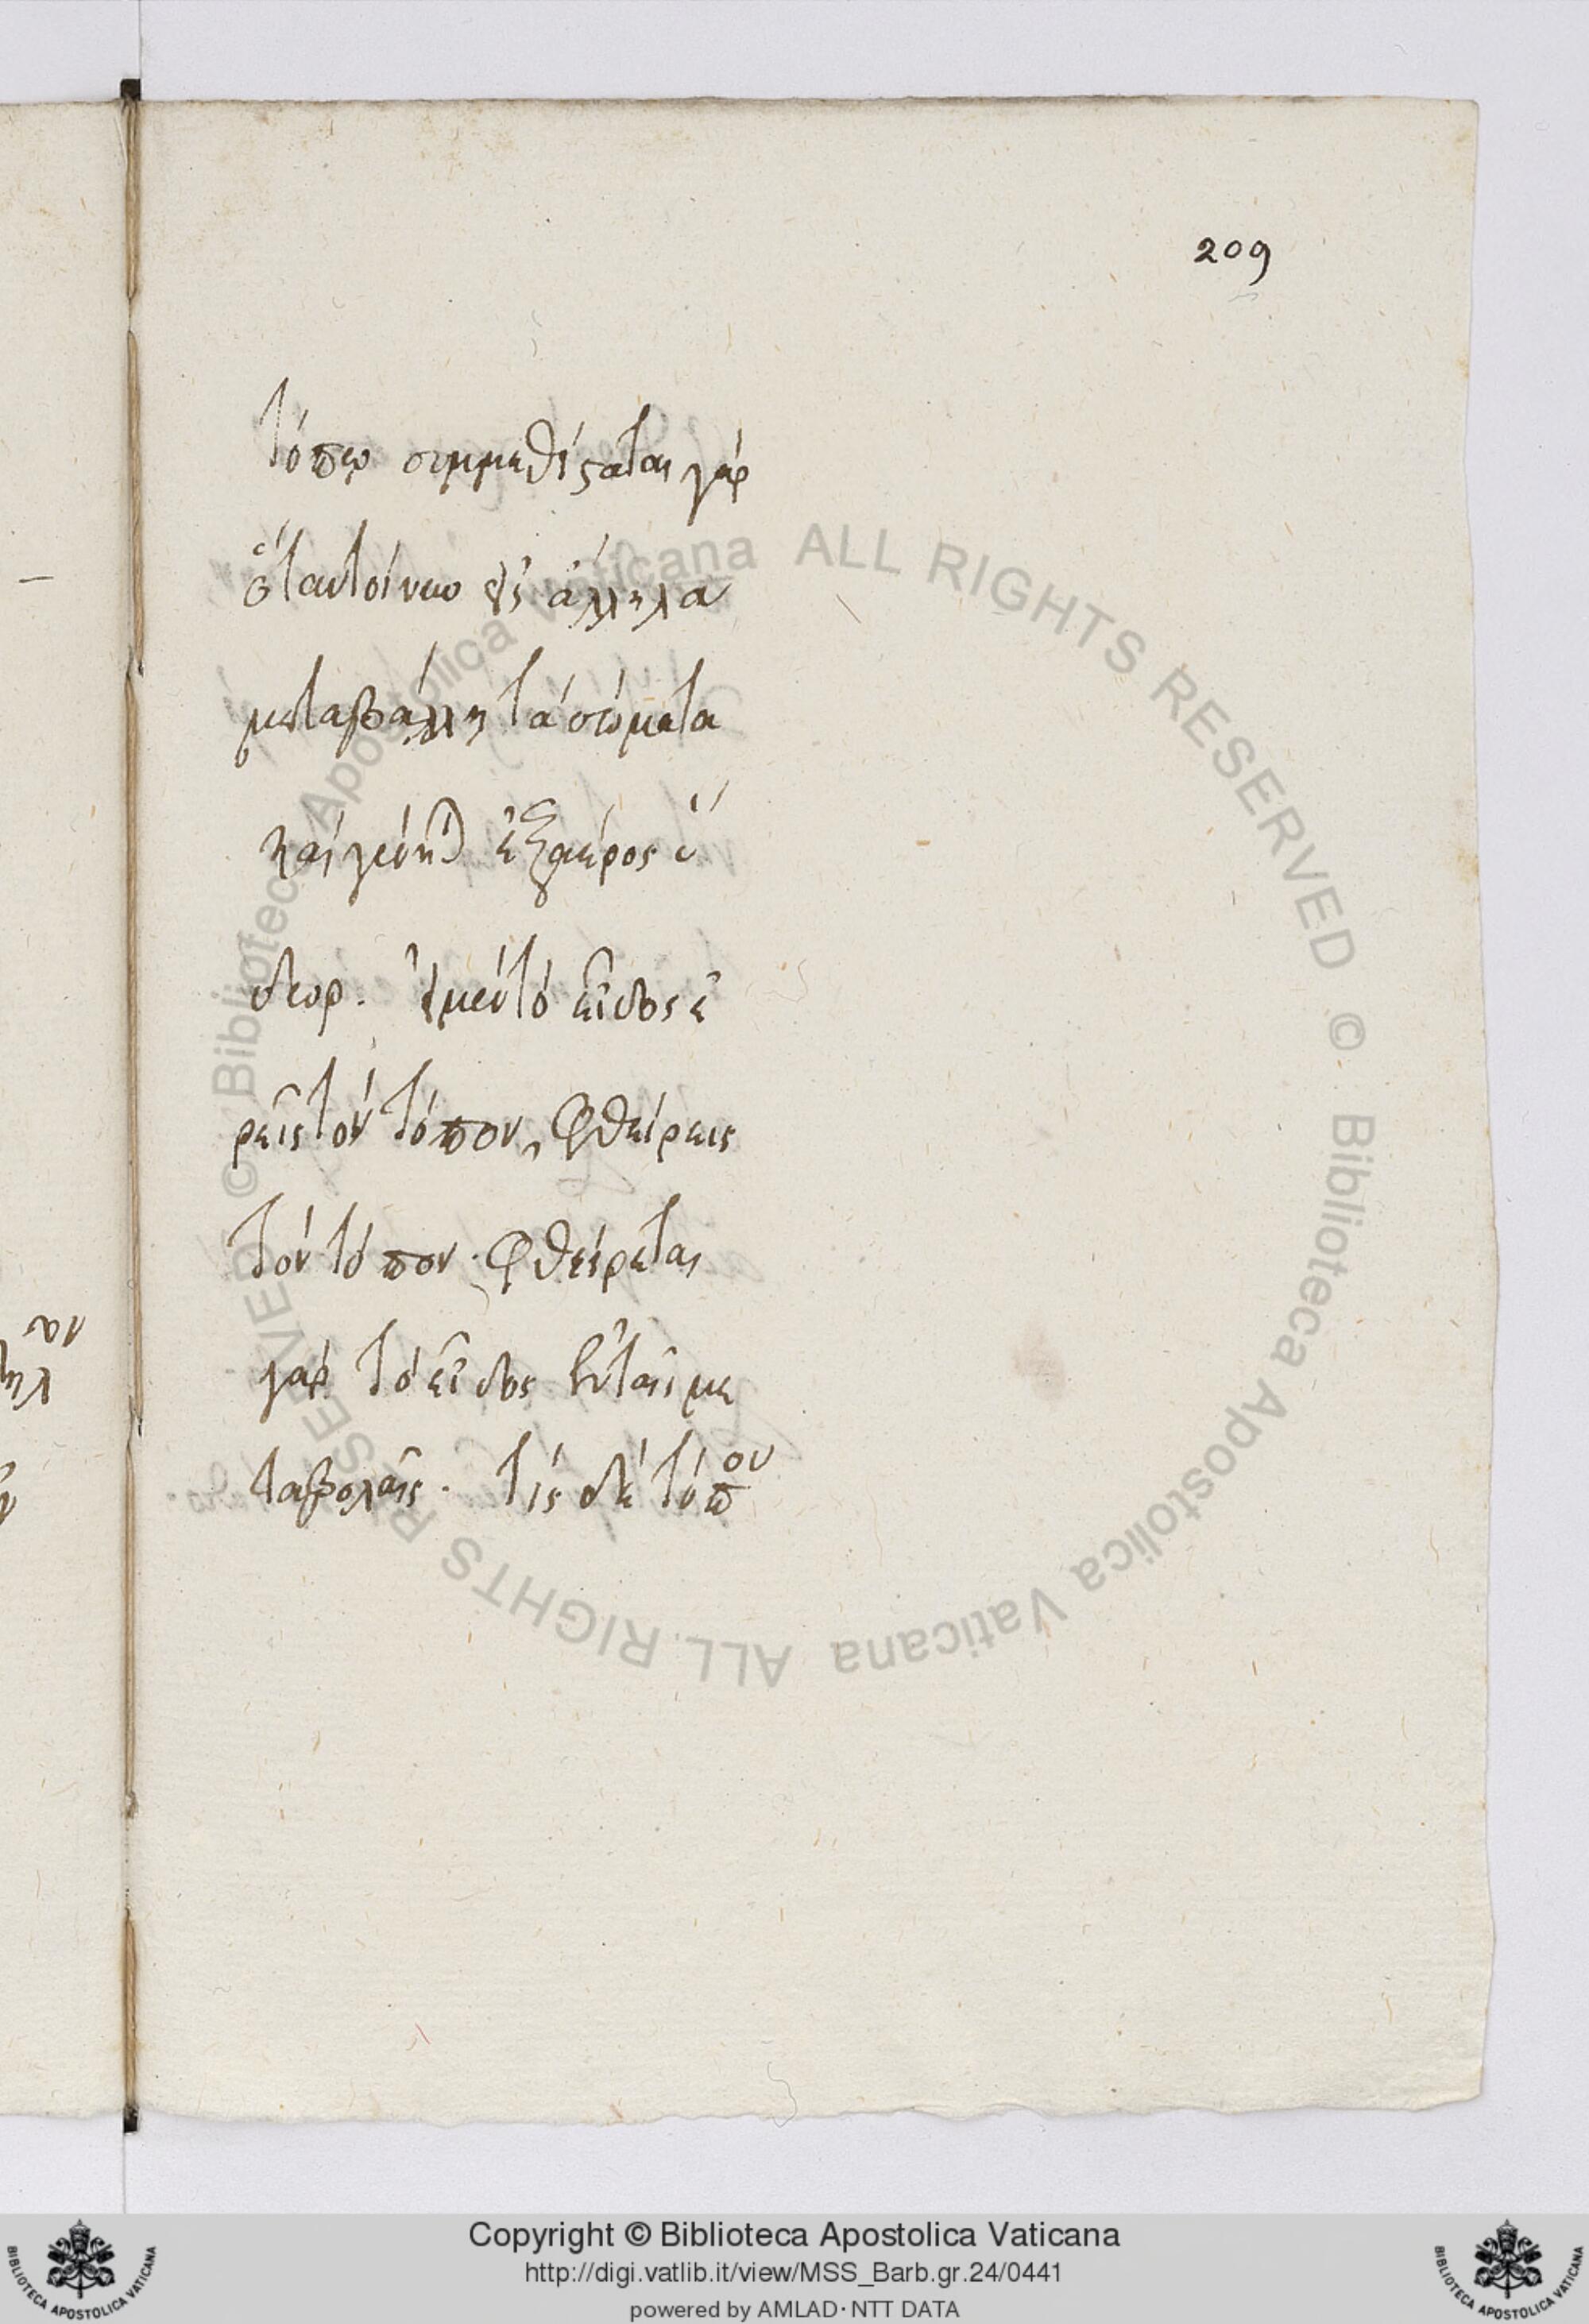 209
τόπω συμμεθίσταται γάρ
ὅταν τοίνυν εἰς ἄλληλα
μεταβάλλη τὰ σώματα
καὶ γένηται ἐξ ἀέρος ὕ
δωρ. εἰ μὲν τὸ εἶδος ἐ
ρεῖς τὸν τόπον, φθείρεις
τὸν τόπον. φθείρεται
γὰρ τὸ εἶδος ἐν ταῖς με
ταβολαῖς. τίς δὲ τόπον
Copyright © Biblioteca Apostolica Vaticana
http://digi.vatlib.it/view/MSS_Barb.gr.24/0441
powered by AMLAD · NTT DATA
© Biblioteca Apostolica Vaticana ALL RIGHTS RESERVED © Biblioteca Apostolica Vaticana ALL RIGHTS RESERVED
BIBLIOTECA APOSTOLICA VATICANA
BIBLIOTECA APOSTOLICA VATICANA